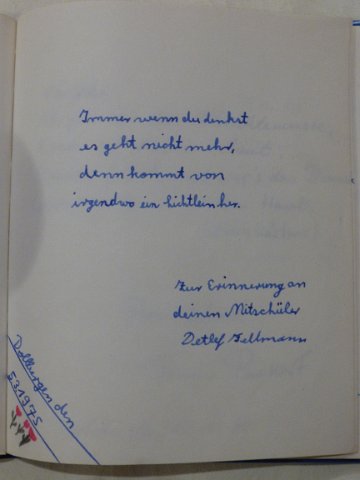 Immer wenn du denkst
es geht nicht mehr,
dann kommt von
irgendwo ein lichtlein her.
Zur Erinnerung an
deinen Mitschüler
Detlef Fellmann
den
5.3.1975